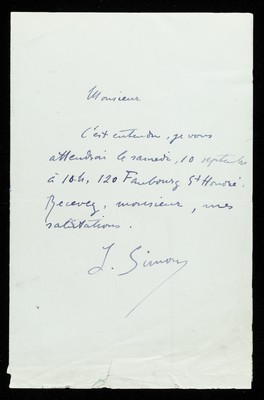 Monsieur
C'est entendu, je vous
attendrai le samedi, 10 septembre
à 10h, 120 Faubourg St Honoré.
Recevez, monsieur, mes
salutations.
J. Simon